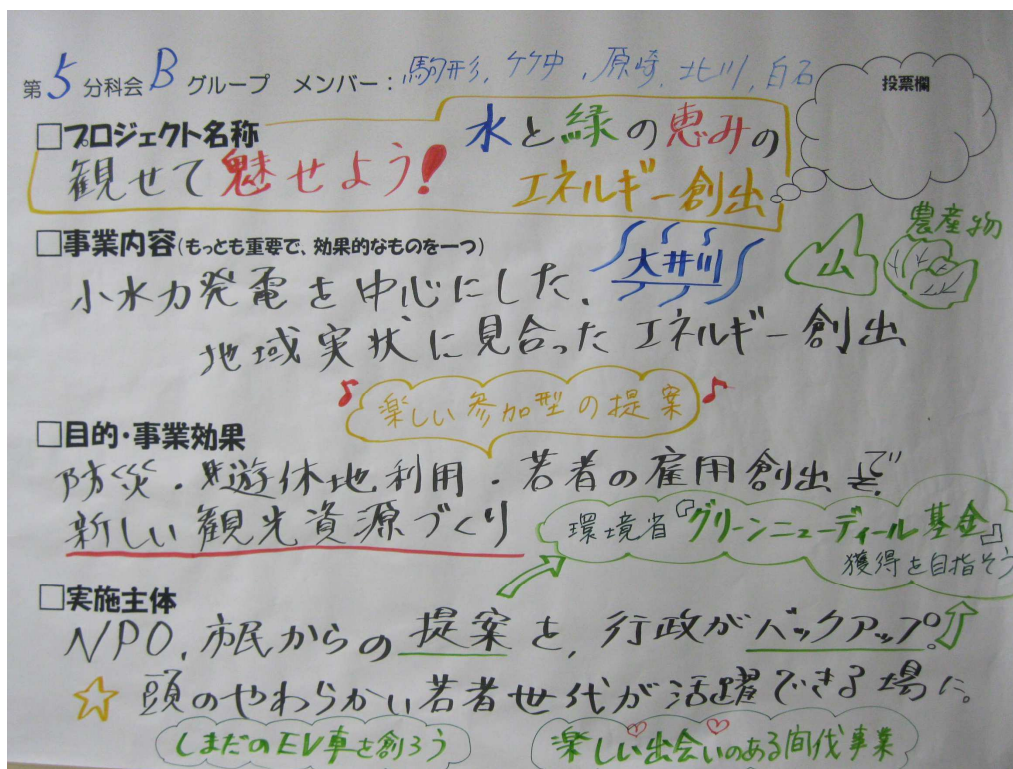 第5分科会 B グループ メンバー：駒形, 竹中, 原崎, 北川, 白石
投票欄
□プロジェクト名称
観せて魅せよう!
水と緑の恵みの
エネルギー創出
□事業内容(もっとも重要で、効果的なものを一つ)
大井川
山
農産物
小水力発電を中心にした、
地域実状に見合ったエネルギー創出
♪楽しい参加型の提案♪
□目的・事業効果
防災・遊休地利用・若者の雇用創出で
新しい観光資源づくり
環境省『グリーンニューディール基金』
獲得を目指そう
□実施主体
NPO, 市民からの提案を, 行政がバックアップ!
☆頭のやわらかい若者世代が活躍できる場に。
しまだのEV車を創ろう
楽しい出会いのある間伐事業